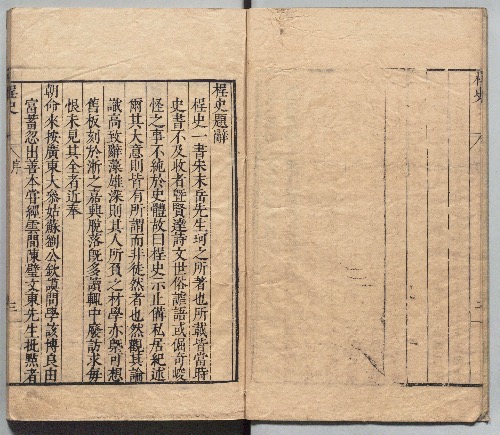 桯史
桯史題辭
桯史一書宋末岳先生珂之所著也所載皆當時
史書不及收者曁賢達詩文世俗謔語或倔竒峻
怪之事不純於史體故曰桯史示止僃私居紀述
爾其大意則皆有所謂而非徒然者也然觀其論
議高致辭藻雄深則其人所負之材學亦槩可想
舊板刻於浙之嘉興脫落旣多讀輒中廢訪求毎
恨未見其全者近奉
朝命來按廣東大叅姑蘇劉公欽謨問學該博良由
富蓄忽出善本嘗經雲間陳璧文東先生批㸃者
桯史
序
三